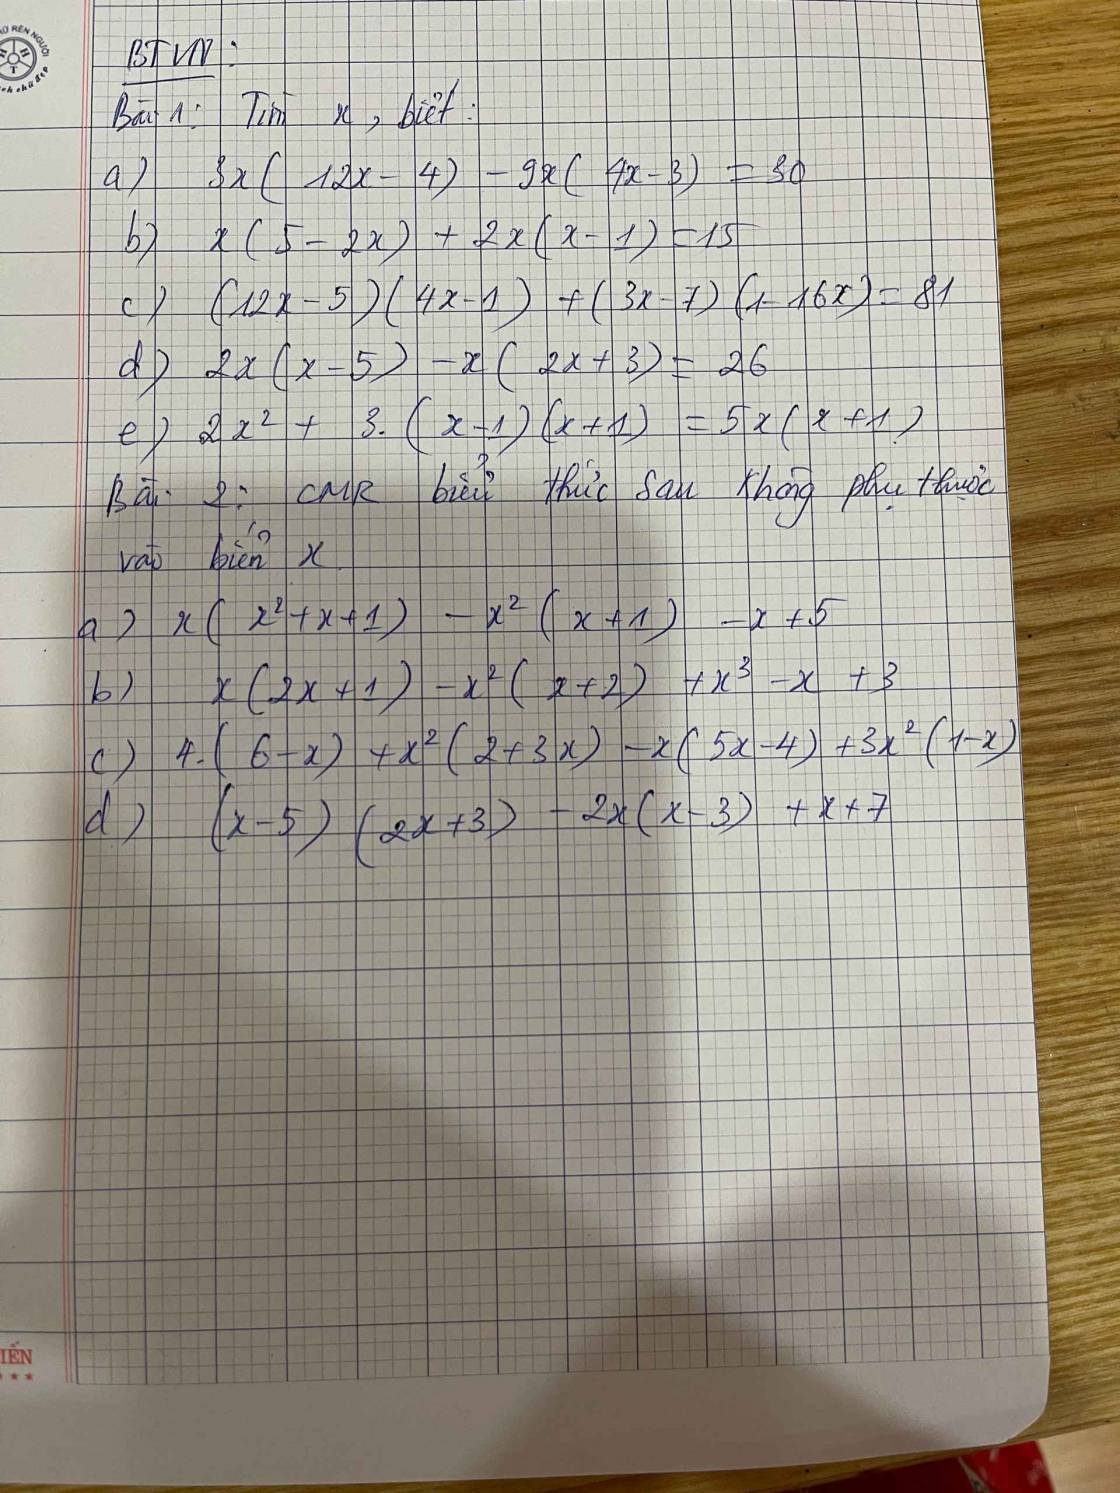 BTVN:
Bài 1: Tìm x, biết:
a) 3x(12x-4) - 9x(4x-3) = 30
b) x(5-2x) + 2x(x-1) = 15
c) (12x-5)(4x-1) + (3x-7)(1-16x) = 81
d) 2x(x-5) - x(2x+3) = 26
e) 2x² + 3.(x-1)(x+1) = 5x(x+1)
Bài 2: CMR biểu thức sau không phụ thuộc
vào biến x
a) x(x²+x+1) - x²(x+1) - x + 5
b) x(2x+1) - x²(x+2) + x³ - x + 3
c) 4.(6-x) + x²(2+3x) - x(5x-4) + 3x²(1-x)
d) (x-5)(2x+3) - 2x(x-3) + x + 7